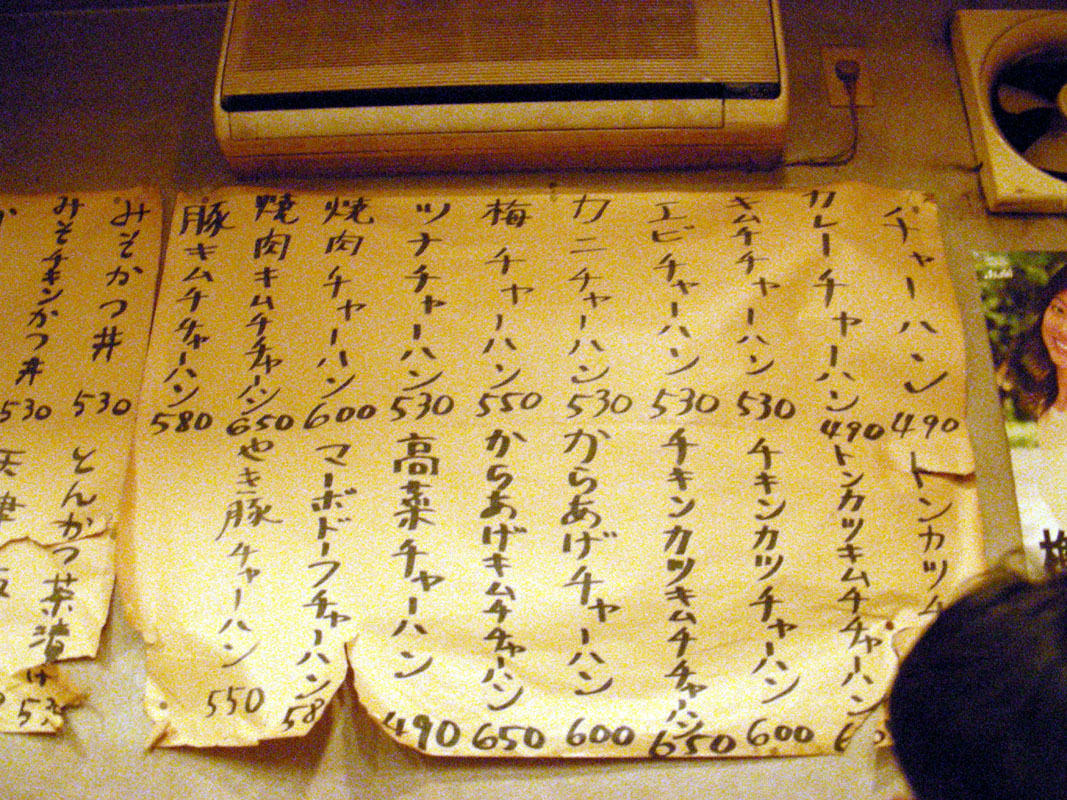 チャーハン 490
カレーチャーハン 490
キムチチャーハン 530
エビチャーハン 530
カニチャーハン 530
梅チャーハン 550
ツナチャーハン 530
焼肉チャーハン 600
焼肉キムチチャーハン 650
豚キムチチャーハン 580
トンカツチ
トンカツキムチチャーハン 6
チキンカツチャーハン 600
チキンカツキムチチャーハン 650
からあげチャーハン 600
からあげキムチチャーハン 650
高菜チャーハン 490
マーボドーフチャーハン 58
やき豚チャーハン 550
みそかつ丼 530
みそチキンかつ丼 530
とんかつ茶漬け
天津飯
Asahi